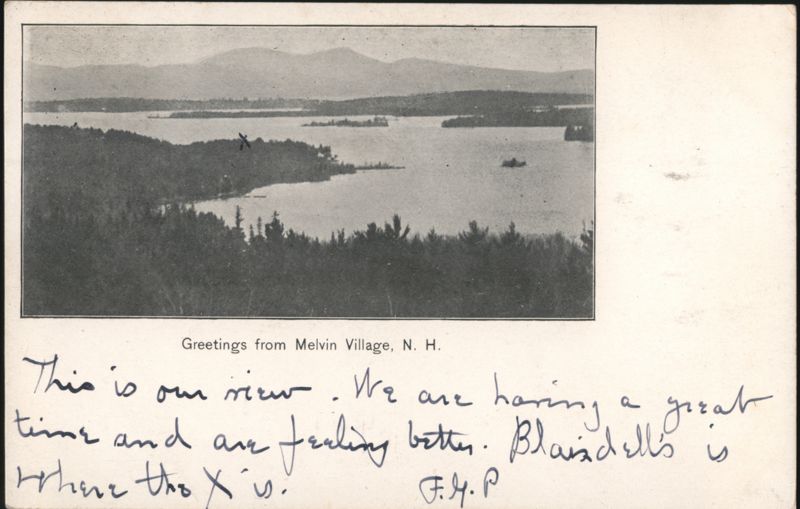 X
Greetings from Melvin Village, N. H.
This is our view. We are having a great
time and are feeling better. Blaisdell's is
where the X is. F.G.P